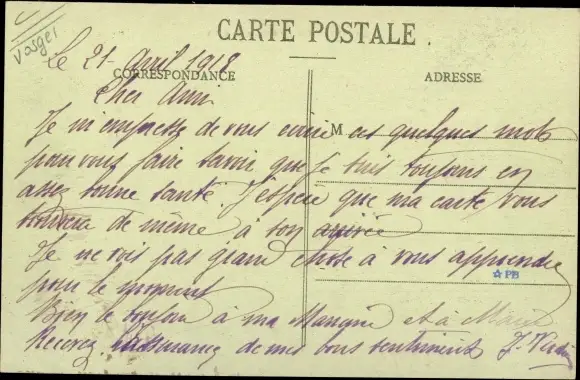 Vosges
CARTE POSTALE
Le 21 Avril 1918
CORRESPONDANCE
ADRESSE
Cher Ami
Je m'empresse de vous écrire ces quelques mots
M
pour vous faire savoir que je suis toujours en
assez bonne santé. J'espère que ma carte vous
trouvera de même à son arrivée
Je ne vois pas grand chose à vous apprendre
☆PB
pour le moment
Bien le bonjour à ma et à
Recevez de mes bons sentiments